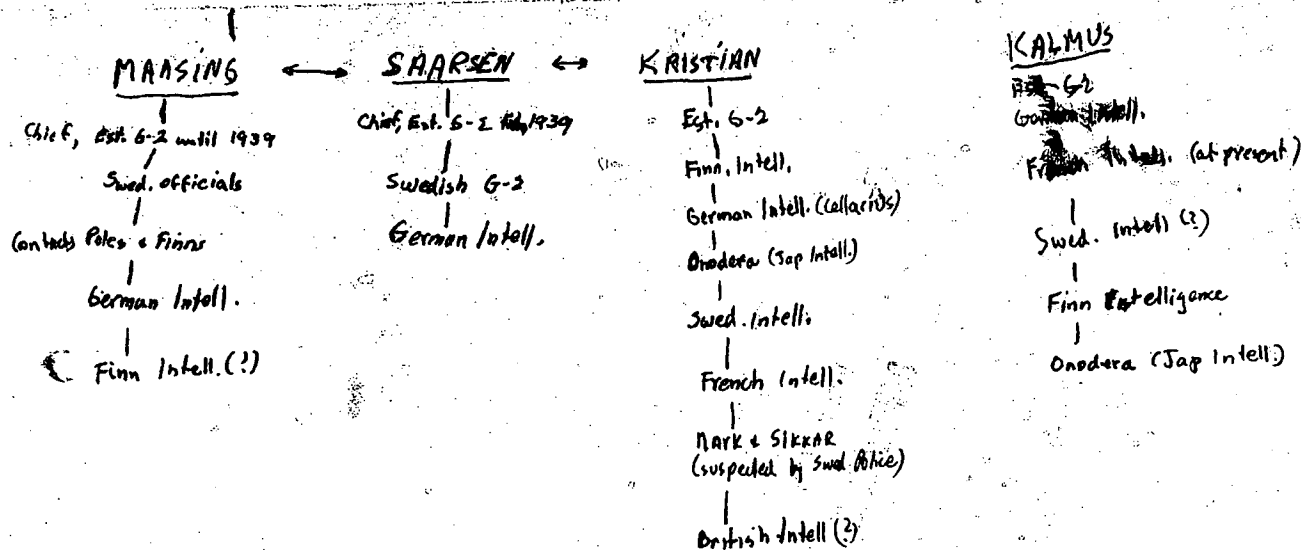 MAASING ↔ SAARSEN ↔ KRISTIAN
Chief, Est. G-2 until 1939
Swed. officials
Contacts Poles & Finns
German Intell.
Finn Intell. (?)
Chief, Est. G-2 1939
Swedish G-2
German Intell.
Est. G-2
Finn. Intell.
German Intell. (Cellarius)
Onodera (Jap Intell.)
Swed. Intell.
French Intell.
MARK & SIKKAR
(suspected by Swed Police)
British Intell (?)
KALMUS
G-2
Intell.
French Intell. (at present)
Swed. Intell (?)
Finn Intelligence
Onodera (Jap Intell.)